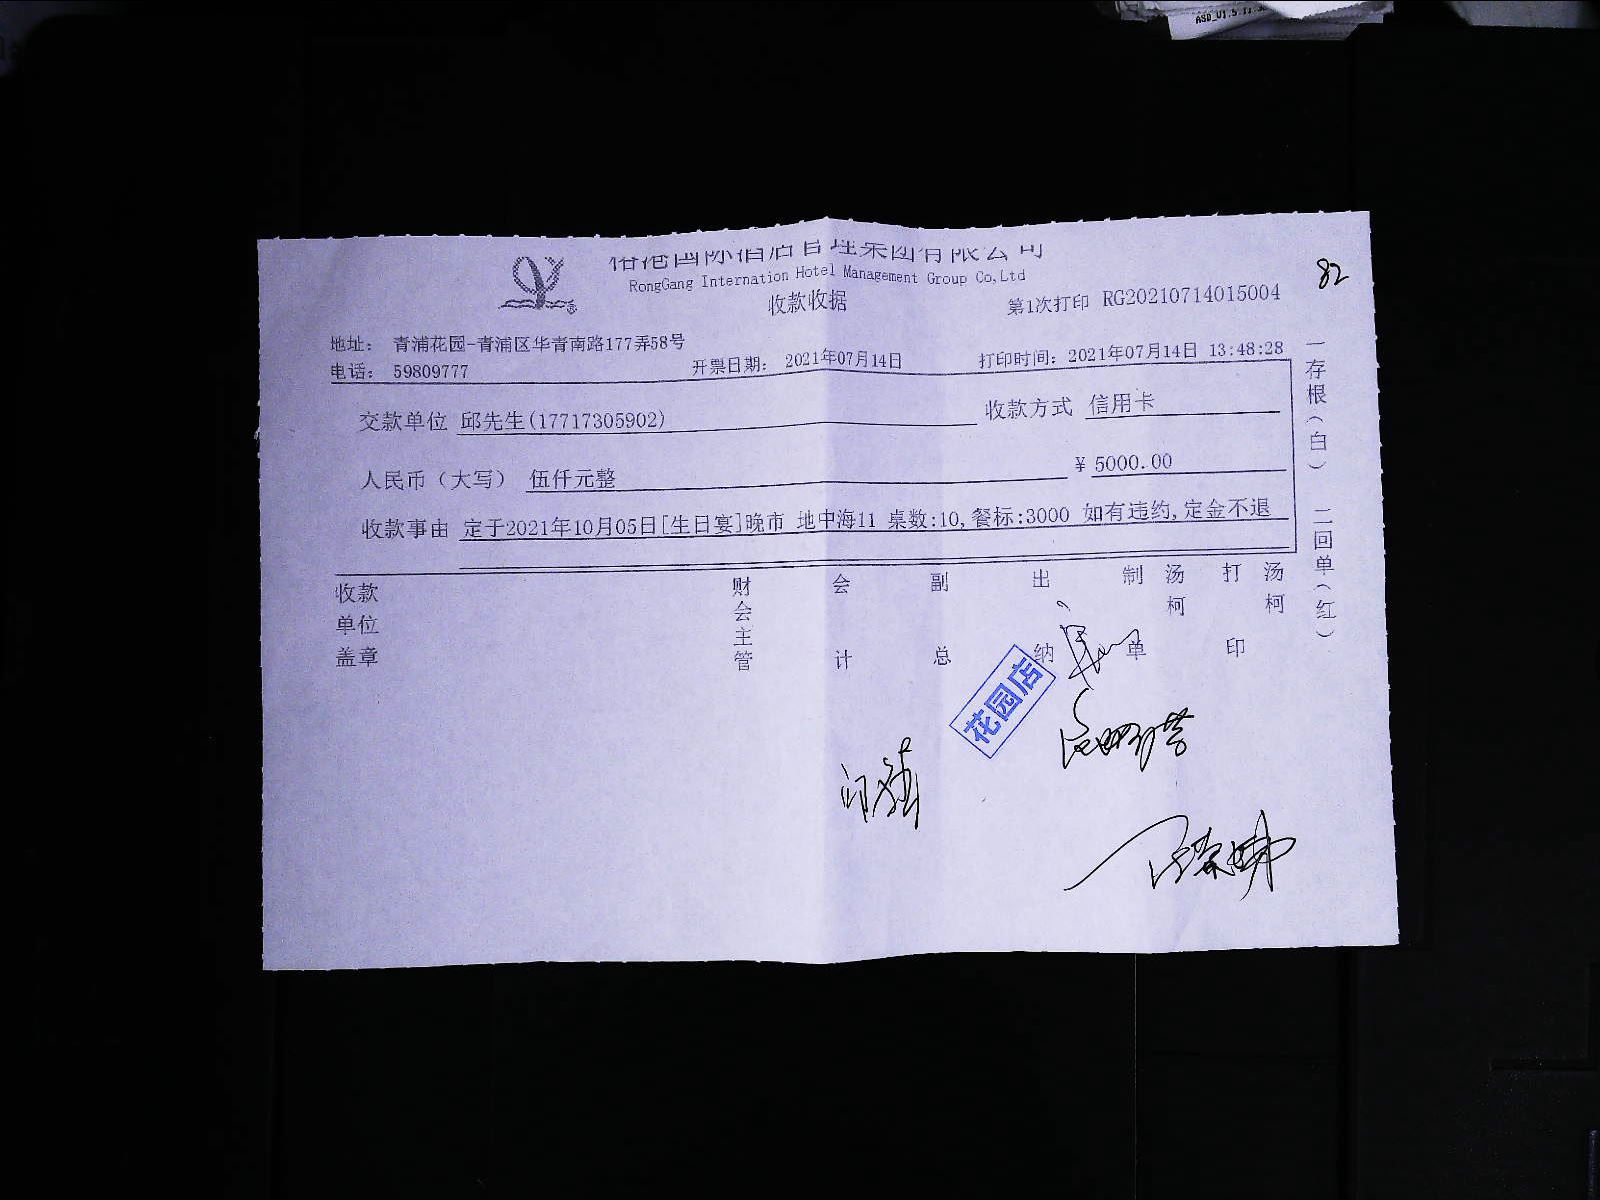 ASD_V1.5.11.
国际酒店管理集团有限公司
RongGang Internation Hotel Management Group Co,Ltd
82
收款收据
第1次打印 RG20210714015004
地址： 青浦花园-青浦区华青南路177弄58号
电话： 59809777
开票日期： 2021年07月14日
打印时间： 2021年07月14日 13:48:28
交款单位 邱先生(17717305902)
收款方式 信用卡
人民币（大写） 伍仟元整
¥ 5000.00
收款事由 定于2021年10月05日[生日宴]晚市 地中海11 桌数:10,餐标:3000 如有违约,定金不退
一存根（白） 二回单（红）
收款单位盖章
财会主管
会计
副总
出纳
制单
汤柯
打印
汤柯
花园店